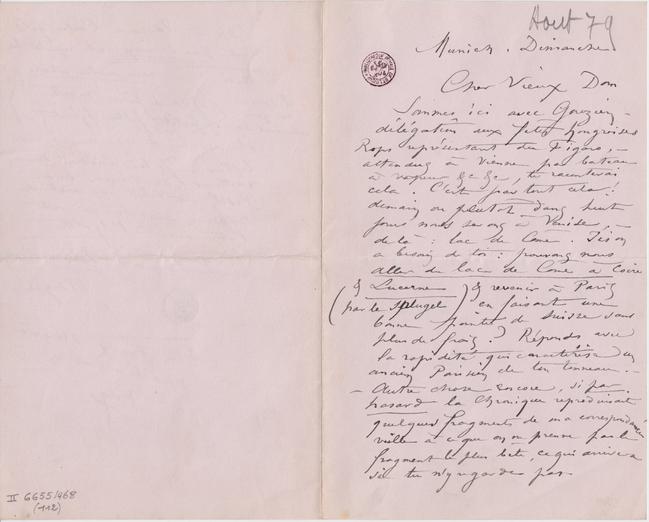 Aout 79
Munich. Dimanche
Cher Vieux Dom
Sommes ici avec Gouzien –
délégation aux fêtes hongroises
Rops représentant du Figaro, –
attendus à Vienne par bateau
à vapeur &c &c, te raconterai
cela. C'est pas tout cela!
demain ou plutôt dans huit
jours nous serons à Venise, –
de là : lac de Come.
a besoin de toi : pouvons nous
aller du lac de Come a Coire
& Lucerne & revenir à Paris
(par le Splugel) en faisant une
bonne pointe de Suisse sans
plus de frais? Réponds avec
la rapidité qui caractérise un
ancien Parisien de ton tonneau. –
– Autre chose encore, si par
hasard la Chronique reproduisait
quelques fragments de ma correspondance
veille à ce que on ne prenne pas le
fragment le plus bête, ce qui arrivera
si tu n'y regardes pas
II 6655/468
(112)